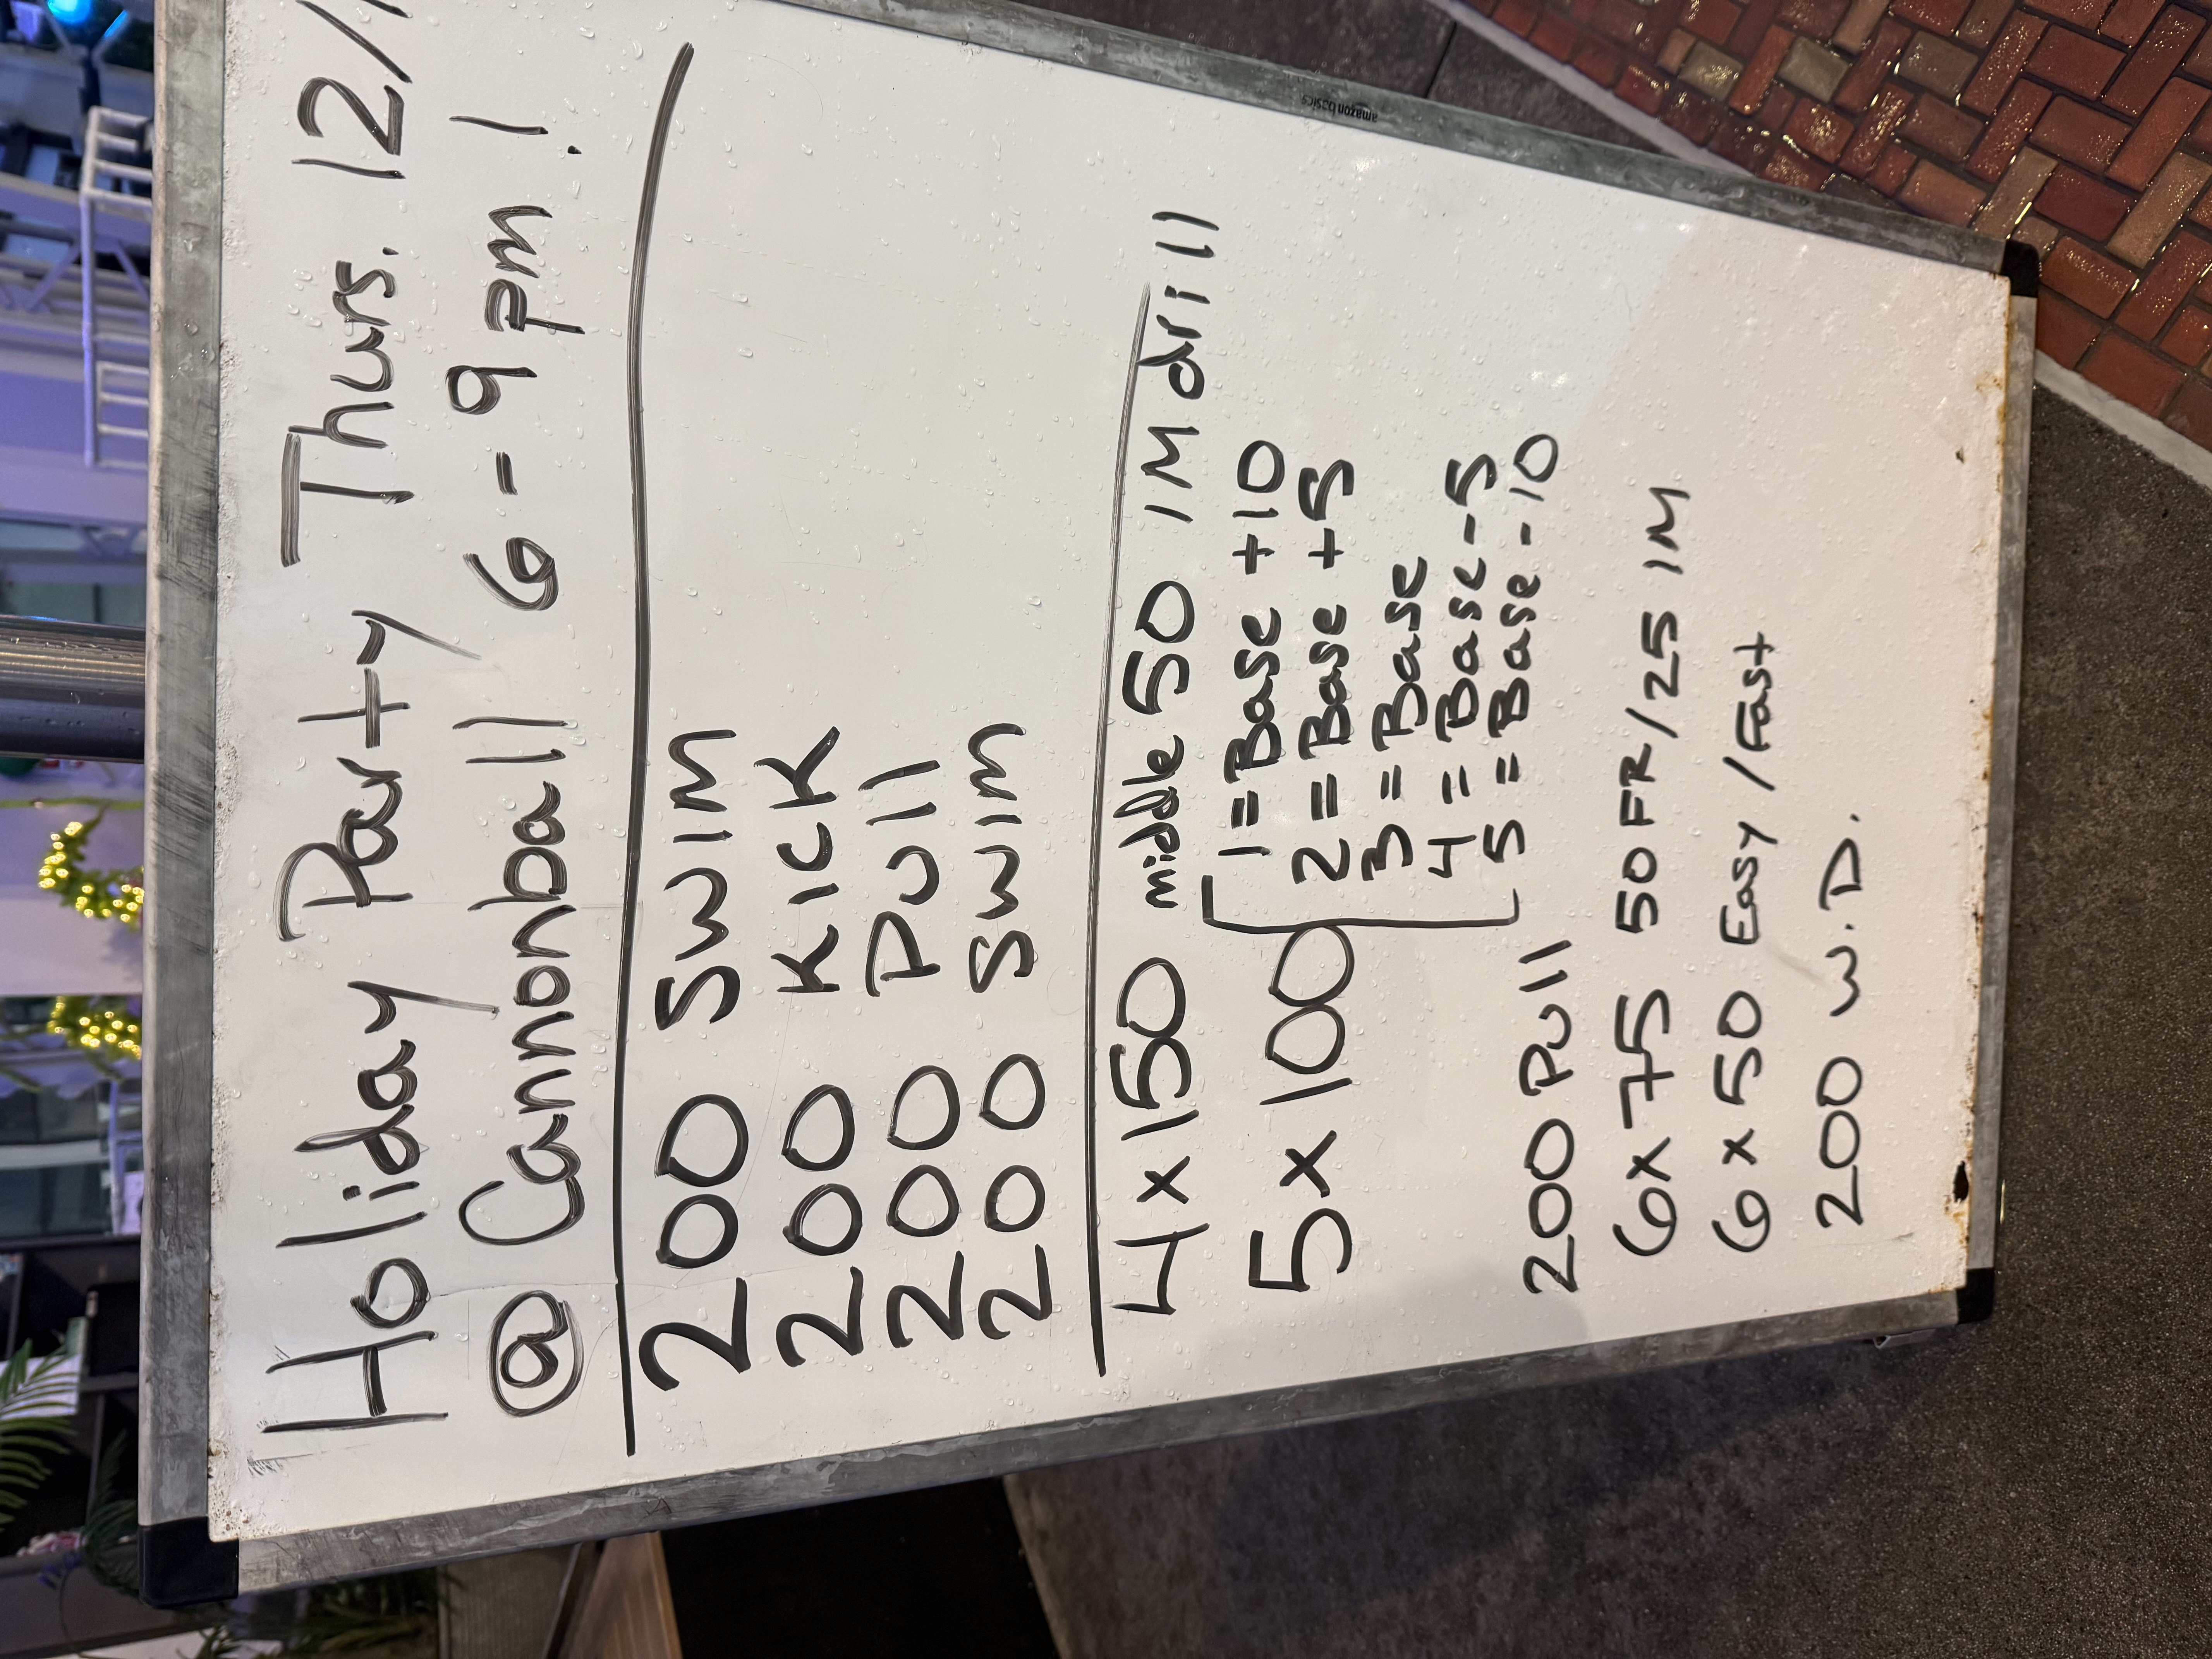 Holiday Party Thurs. 12/
@ Cannonball 6-9pm!
200 SWIM
200 KICK
200 Pull
200 SWIM
4 x 150 middle 50 IM drill
5 x 100 [ 1 = Base +10
2 = Base +5
3 = Base
4 = Base -5
5 = Base -10
200 Pull
6 x 75 50 FR/25 IM
6 x 50 Easy/Fast
200 W.D.
amazon basics